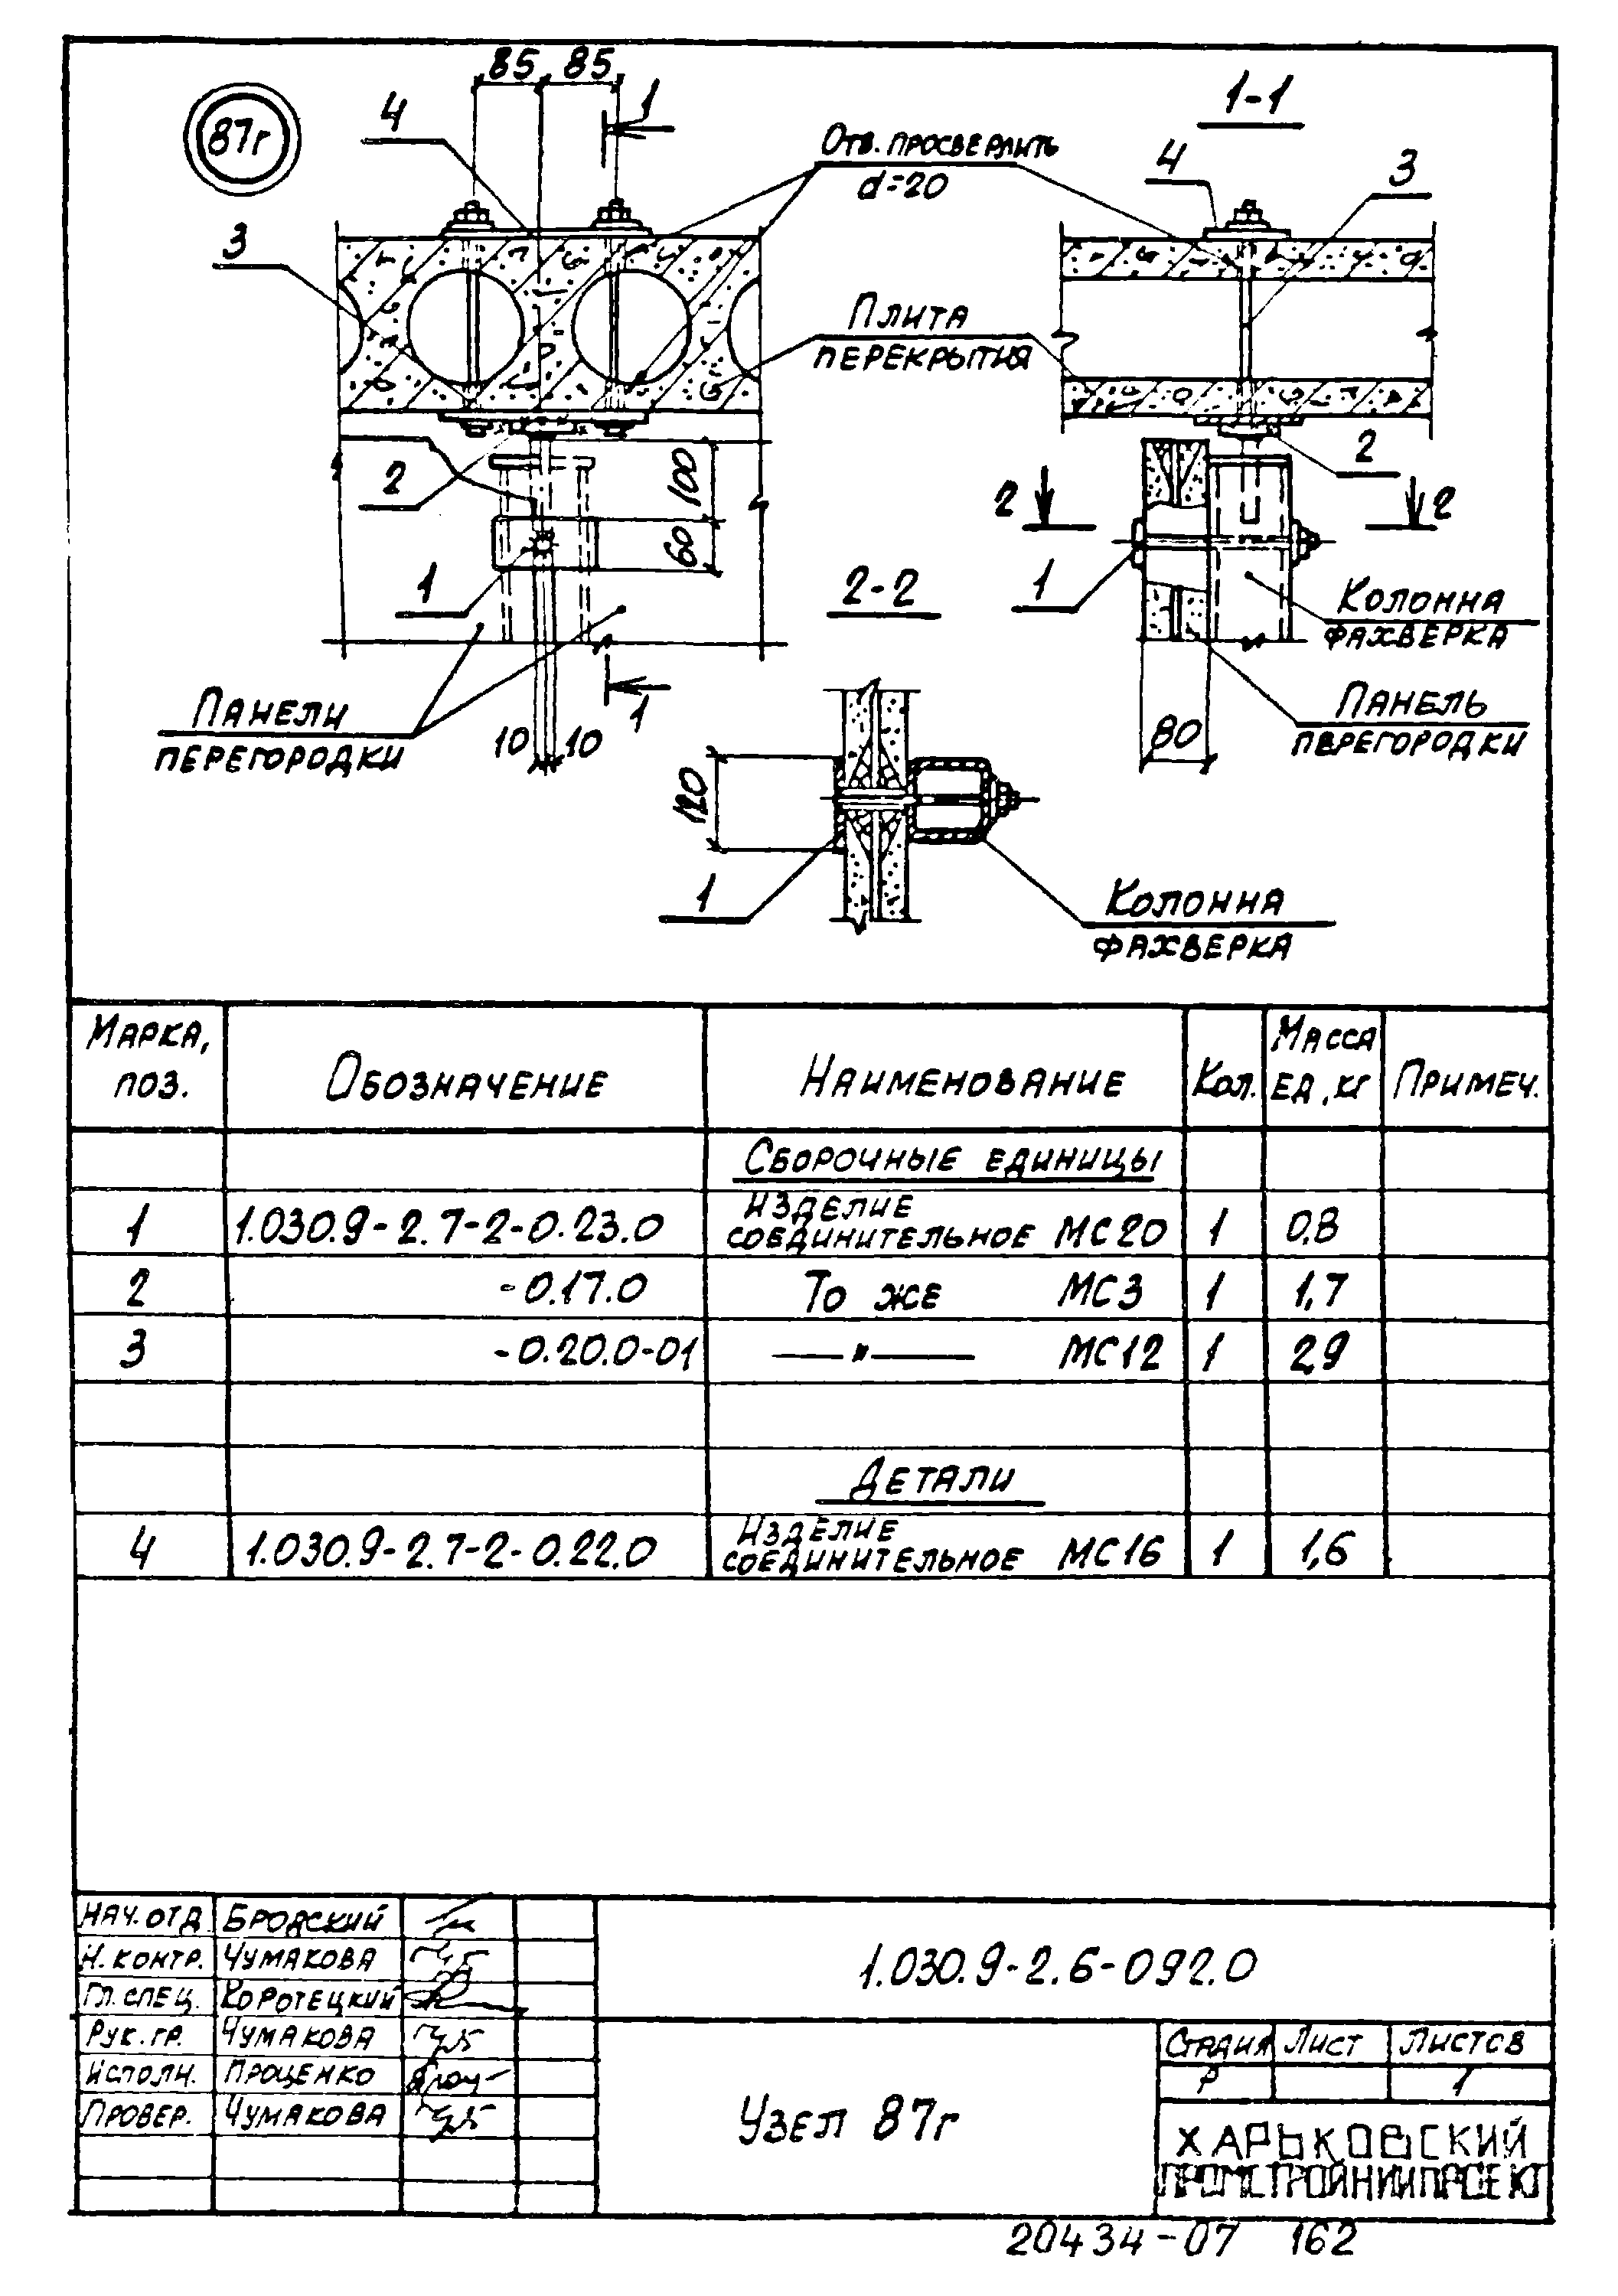 85 85
87г
4
1
1-1
Отв. просверлить
d=20
4
3
3
Плита
перекрытия
2
100
60
1
2
2
2
1
2-2
Колонна
фахверка
Панели
перегородки
1
10 10
80
Панель
перегородки
120
1
Колонна
фахверка
Марка, поз.
Обозначение
Наименование
Кол.
Масса ед, кг
Примеч.
Сборочные единицы
1 1.030.9-2.7-2-0.23.0 Изделие соединительное МС20 1 0,8
2 -0.17.0 То же МС3 1 1,7
3 -0.20.0-01 —"— МС12 1 2,9
Детали
4 1.030.9-2.7-2-0.22.0 Изделие соединительное МС16 1 1,6
Нач. отд Бродский
Н. контр. Чумакова
Гл. спец. Коротецкий
Рук. гр. Чумакова
Исполн. Проценко
Провер. Чумакова
1.030.9-2.6-092.0
Узел 87г
Стадия Лист Листов
Р 1
Харьковский
Промстройниипроект
20434-07 162